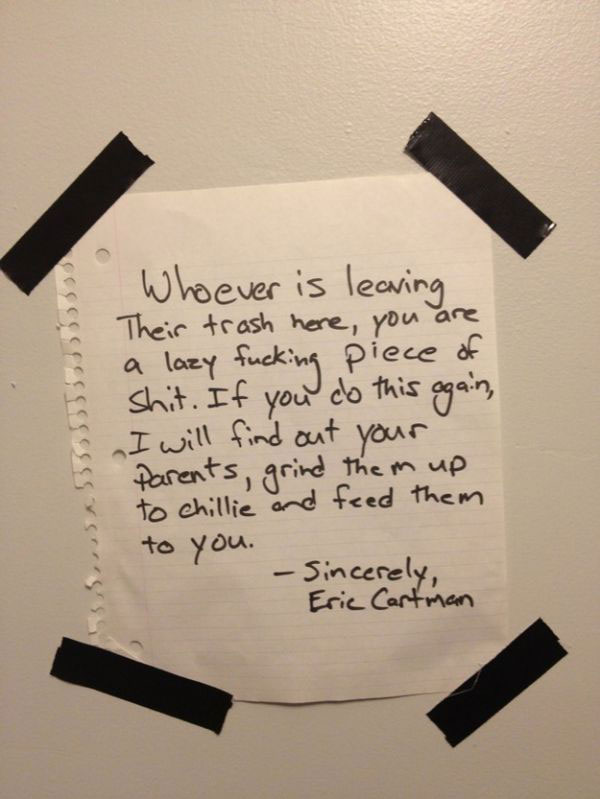 Whoever is leaving
Their trash here, you are
a lazy fucking piece of
shit. If you do this again,
I will find out your
Parents, grind them up
to chillie and feed them
to you.
- Sincerely,
Eric Cartman